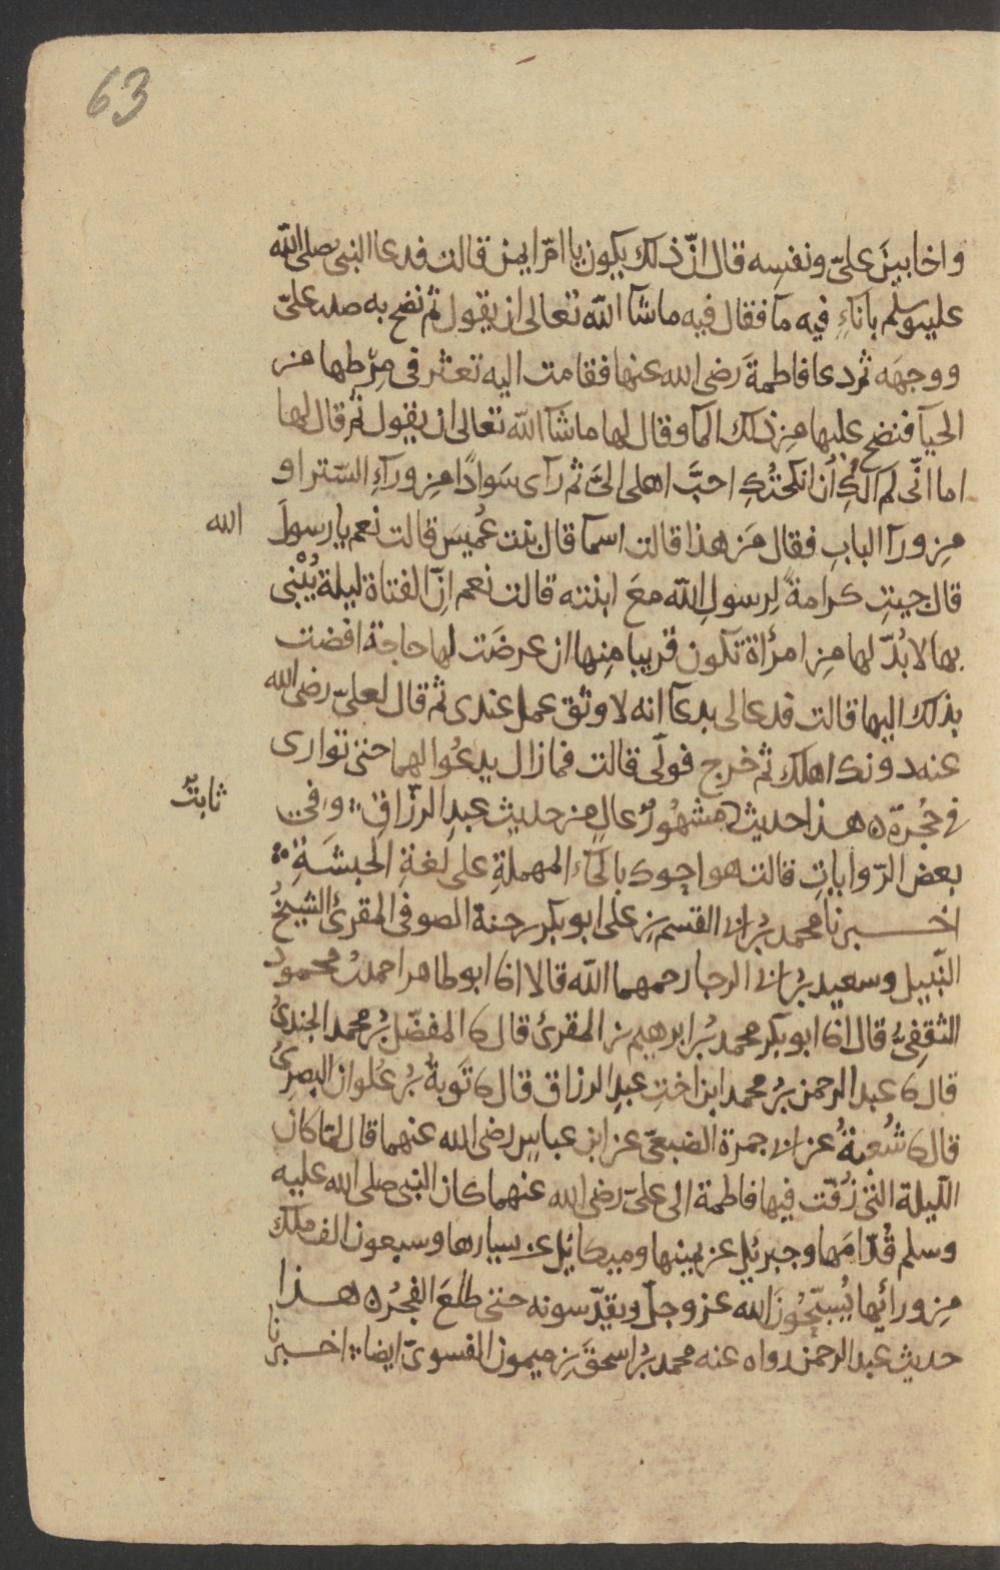 63
واخا بينَ علىّ ونفسِه قال انّ ذلك يكون يا امّ ايمن قالت فدعا النبى صلى الله
عليه وسلم بانآءٍ فيه مآ فقال فيه ماشآ الله تعالى ان يقول ثم نضح به صدر علىّ
ووجهَه ثم دعا فاطمةَ رضى الله عنها فقامت اليه تعثر فى مِرْطها من
الحيآ فنضح عليها مِن ذلك المآ وقال لها ماشآ الله تعالى ان يقول ثم قال لها
اما انّى لم آلُكِ أن انكحتُكِ احبَّ اهلى الىَّ ثم رآى سَوادًا مِن ورآءِ السّتر او
مِن ورآ البابِ فقال مَن هذا قالت اسمآ قال بنت عُميس قالت نعم يا رسولَ الله
قال جيتِ كرامةً لِرسولِ الله معَ ابنته قالت نعم انّ الفتاة ليلة يُبْنى
بها لا بُدّ لها مِن امرأة تكون قريبا مِنها ان عرضَت لها حاجة افضت
بذلك اليها قالت فدعا لى بدعآ انه لاوثق عمل عندى ثم قال لعلىّ رضى الله
عنه دونك اهلك ثم خرج فولّى قالت فما زال يدعُوا لهما حتى توارى
فى حُجرَة ٥ هذا حديث مشهُورٌ عالٍ من حديث عبدِ الرزّاقِ وفى ثابتٌ
بعض الرّواياتِ قالت هو اخوك بالحآء المهملةِ على لغةِ الحبشَةِ
اخبرنا محمد بنُ ابى القسم بن على ابو بكر بن حنة الصوفى المقرئُ الشيخُ
النّبيل وسعيد بنُ ابى الرجا رحمهما الله قالا انا ابو طاهر احمد بنُ محمود
الثقفِىُّ قال انا ابو بكر محمد بنُ ابرهيم بن المقرئ قال نا المفضّل بنُ محمد الجندىُّ
قال نا عبد الرحمن بنُ محمد ابن اخت عبدِ الرزاق قال نا تَوبةُ بنُ عُلوان البصرِىُّ
قال نا شُعبةُ عن ابى جمرة الضبعىّ عن ابن عباسٍ رضى الله عنهما قال لمّا كان
اللّيلة التى زُفّت فيها فاطمة الى علىّ رضى الله عنهما كان النبى صلى الله عليه
وسلم قُدّامَها وجبرئيل عن يمينها وميكائيل عن يسارها وسبعون الف ملك
مِن ورائِها يُسبّحُونَ الله عز وجلّ ويقدّسونه حتى طلعَ الفجرُ ٥ هذا
حديث عبد الرحمن رواه عنه محمد بنُ اسحقَ بن ميمون الفسوىّ ايضا اخبرنا